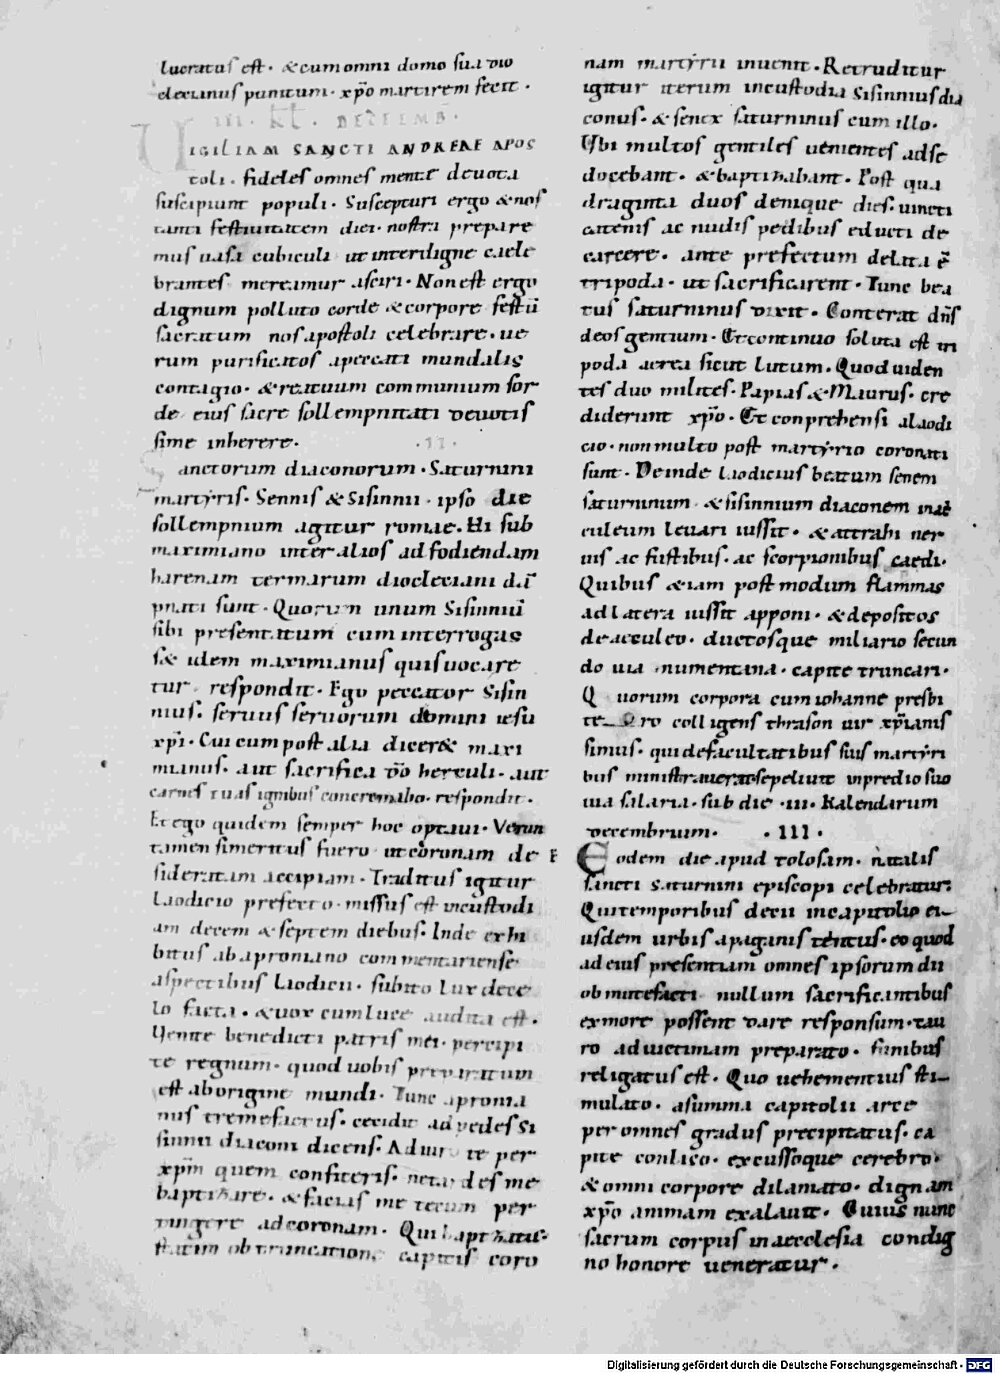 lucratus est · & cum omni domo sua dio
clecianus punitum · xp̅o martirem fecit ·
III · KL̅ · DECEMB̅ ·
VIGILIAM SANCTI ANDREAE APOS
toli · fideles omnes mente devota
suscipiunt populi · Suscepturi ergo & nos
tanti festiuitatem diei · nostra prepare
mus uasa cubiculi ut interdigne caele
brantes mereamur asciri · Non est ergo
dignum polluto corde & corpore festū
sacratum nos apostoli celebrare · ue
rum purificatos a peccati mundalis
contagio · & reatuum communium sor
de eius sacre sollempnitati deuotis
sime inherere ·
· II ·
Sanctorum diaconorum · Saturnini
martyris · Sennis & Sisinnii · ipso die
sollempnium agitur romae · Hi sub
maximiano inter alios ad fodiendam
harenam termarum diocleciani dā
pnati sunt · Quorum unum Sisinniū
sibi presentatum cum interrogas
s& idem maximianus quis uocare
tur respondit · Ego peccator Sisin
nius · seruus seruorum domini iesu
xp̅i · Cui cum post alia dicer& maxi
mianus · aut sacrifica dō herculi · aut
carnes tuas ignibus concremabo · respondit ·
Et ego quidem semper hoc optaui · Verun
tamen si meritus fuero ut coronam de
sideratam accipiam · Traditus igitur
laodicio prefecto · missus est in custodi
am decem & septem diebus · Inde exhi
bitus ab aproniano commentariense
aspectibus laodicii · subito lux de ce
lo facta · & uox cum luce audita est ·
Uenite benedicti patris mei · percipi
te regnum · quod uobis preparatum
est ab origine mundi · Tunc apronia
nus tremefactus · cecidit ad pedes Si
sinnii diaconi dicens · Adiuro te per
xp̅m quem confiteris · ne tardes me
baptizare · & facias me tecum per
tingere ad coronam · Qui baptizatus ·
statim obtruncatione capitis coro
nam martyrii inuenit · Retruditur
igitur iterum in custodia Sisinnius dia
conus · & senex saturninus cum illo ·
Ubi multos gentiles uenientes ad se
docebant · & baptizabant · Post qua
draginta duos denique dies · uincti
catenis ac nudis pedibus educti de
carcere · ante prefectum delata ē
tripoda · ut sacrificarent · Tunc bea
tus saturninus dixit · Conterat dn̅s
deos gentium · Et continuo soluta est tri
poda aerea sicut lutum · Quod uiden
tes duo milites · Papias & Maurus · cre
diderunt xp̅o · Et conprehensi a laodi
cio · non multo post martyrio coronati
sunt · Deinde laodicius beatum senem
saturninum & sisinnium diaconem in ac
culeum leuari iussit · & attrahi ner
uis ac fustibus · ac scorpionibus caedi ·
Quibus & iam post modum flammas
ad latera iussit apponi · & depositos
de acculeo · ductosque miliario secun
do uia numentana · capite truncari ·
Quorum corpora cum iohanne presbi
tero colligens thrason uir xp̅ianis
simus · qui de facultatibus suis martyri
bus ministrauerat sepeliuit in predio suo
uia salaria · sub die · III · Kalendarum
decembrium · · III ·
Eodem die apud tolosam · natalis
sancti saturnini episcopi celebratur ·
Qui temporibus decii in capitolio ei
usdem urbis a paganis tentus · eo quod
ad eius presentiam omnes ipsorum dii
obmutefacti nullum sacrificantibus
ex more possent dare responsum · tau
ro ad uictimam preparato · funibus
religatus est · Quo uehementius sti
mulato · a summa capitolii arce
per omnes gradus precipitatus · ca
pite conliso · excussoque cerebro ·
& omni corpore dilaniato · dignam
xp̅o animam exalauit · Cuius nunc
sacrum corpus in aecclesia condig
no honore ueneratur ·
Digitalisierung gefördert durch die Deutsche Forschungsgemeinschaft · DFG